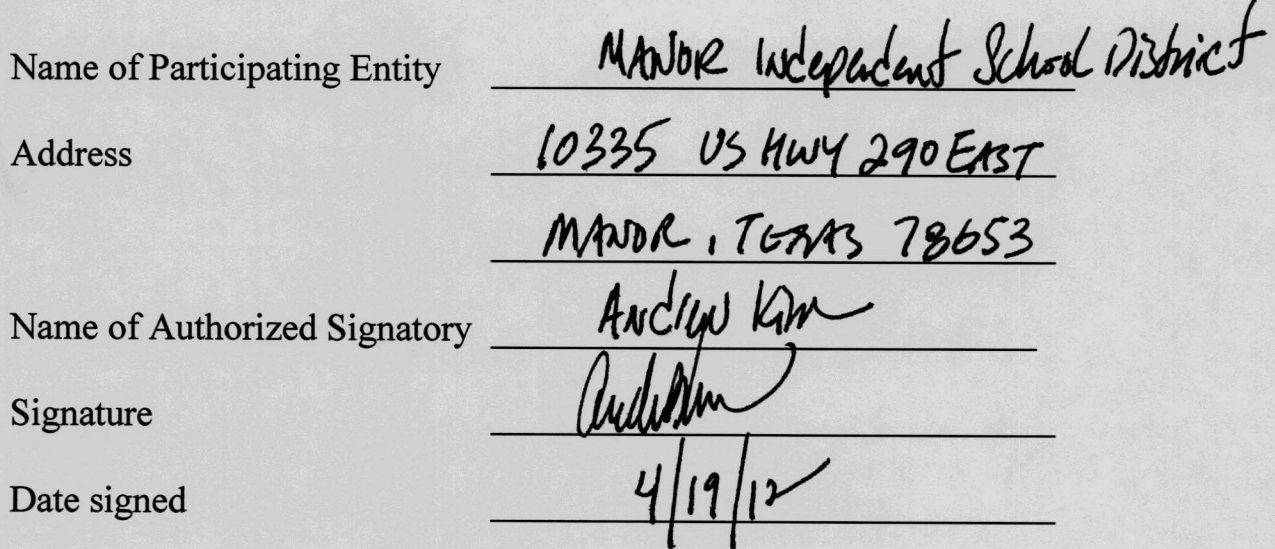 Name of Participating Entity MANOR Independent School District
Address 10335 US HWY 290 EAST
MANOR, TEXAS 78653
Name of Authorized Signatory Andrew Kim
Signature
Date signed 4/19/12